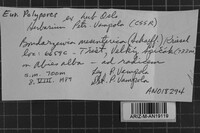 Eur. Polypores ex herb. Dela
Herbarium Petr Vampola (ČSSR)
Bondarzewia mesenterica (Schaeff.) Kreisel
loc: 6659c - Třešť, Velký Špičák (733m)
in Abies alba - ad radicem
a.m. 700m
8.VIII.1989
Leg. P. Vampola
Det. P. Vampola
AN018294
ARIZ-M-AN18119